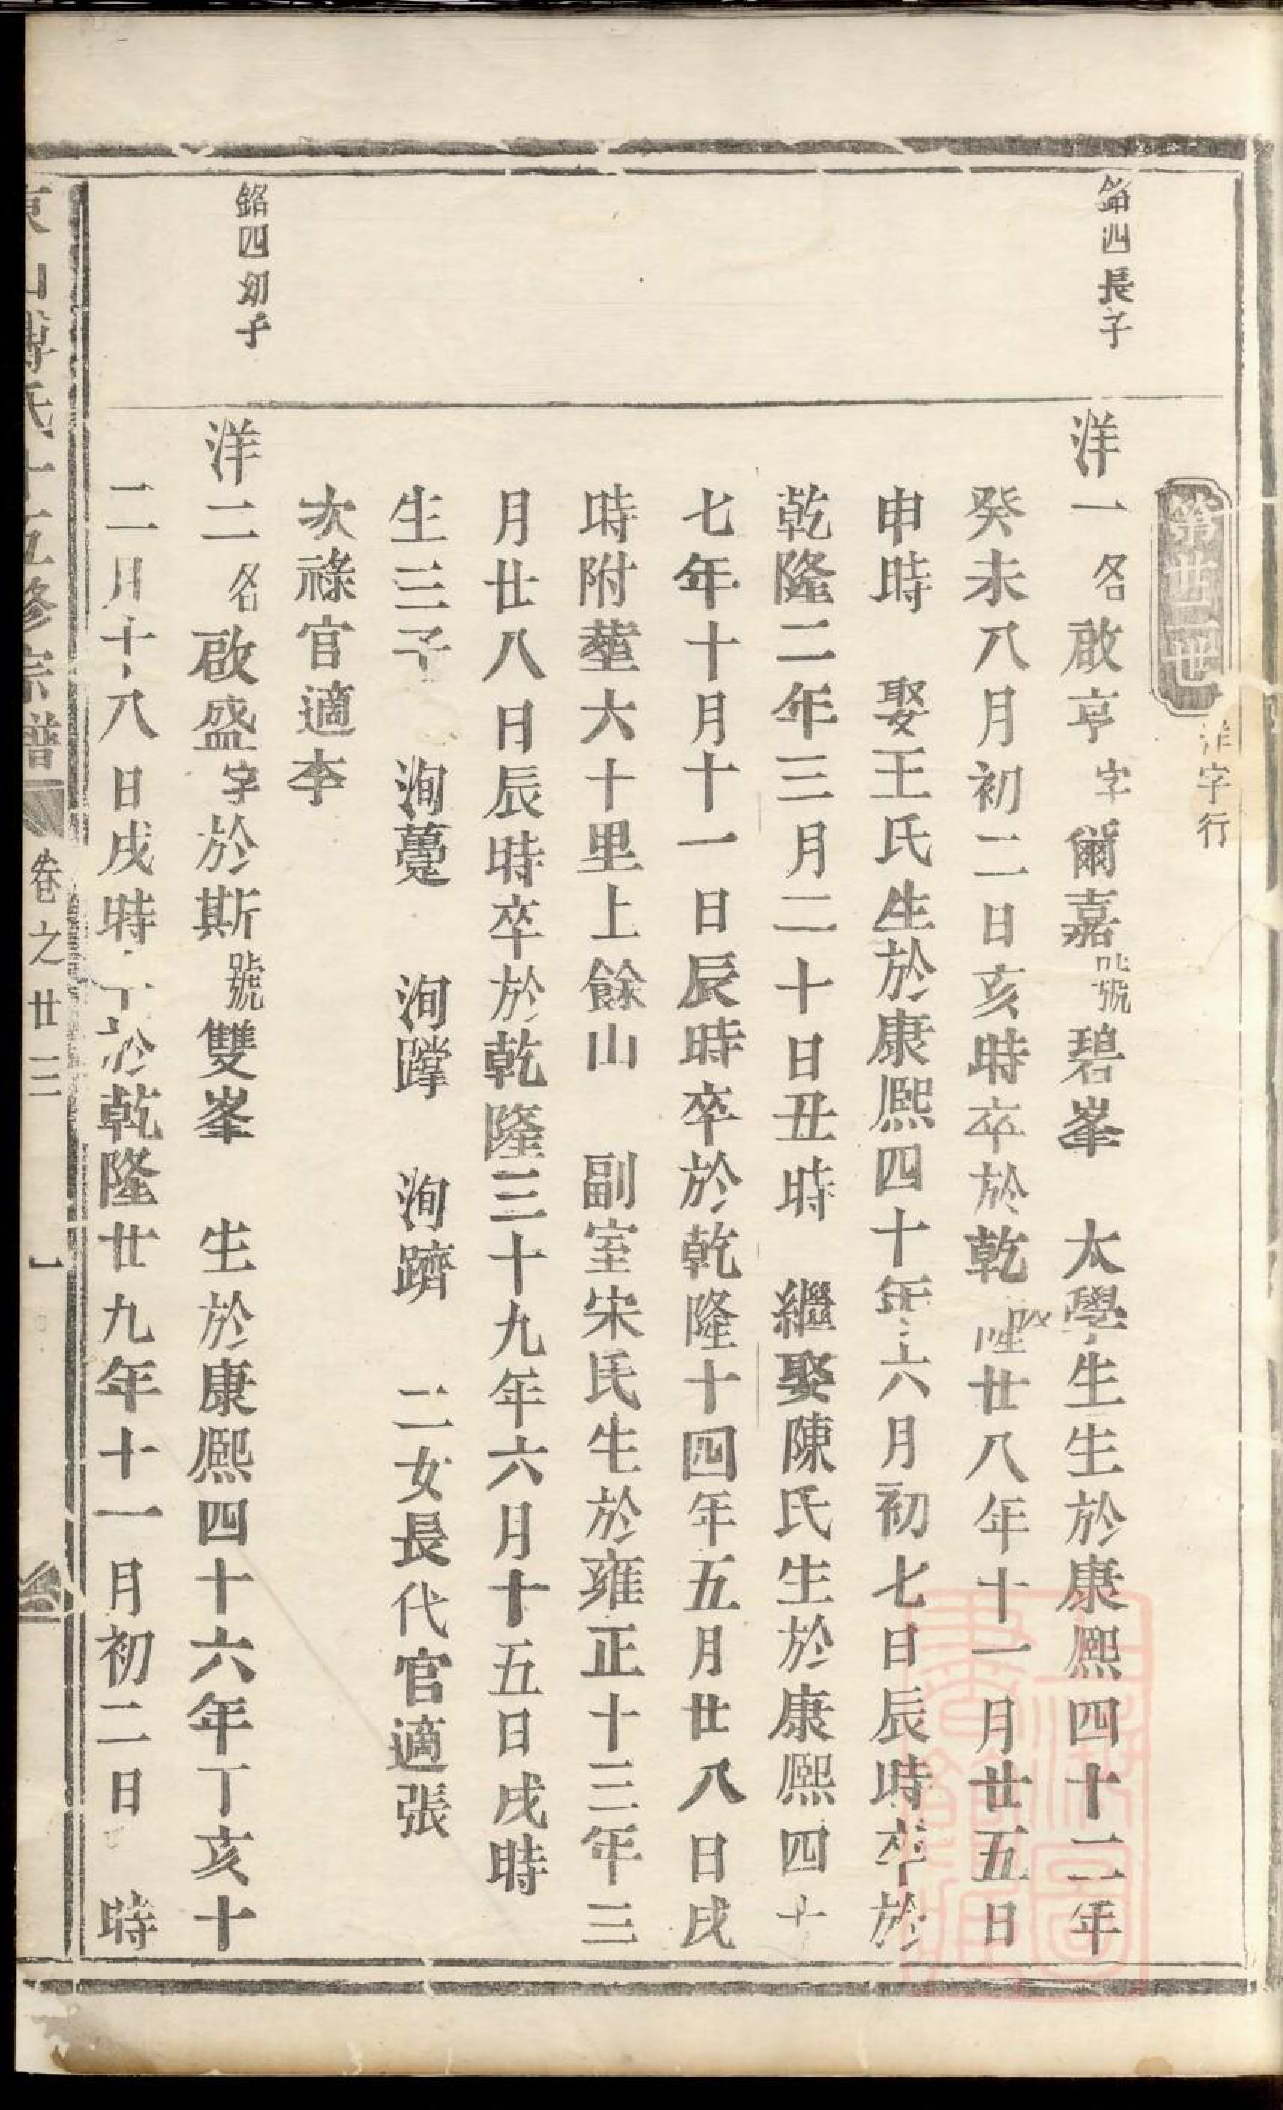 第廿二世 洋字行
銘四長子
洋一名啟亨字爾嘉號碧峯 太學生生於康熙四十二年
癸未八月初二日亥時卒於乾隆廿八年十一月廿五日
申時 娶王氏生於康熙四十年六月初七日辰時卒於
乾隆二年三月二十日丑時 繼娶陳氏生於康熙四十
七年十月十一日辰時卒於乾隆十四年五月廿八日戌
時附塟六十里上餘山 副室宋氏生於雍正十三年三
月廿八日辰時卒於乾隆三十九年六月十五日戌時
生三子 洵躉 洵蹿 洵躋 二女長代官適張
次祿官適李
銘四幼子
洋二名啟盛字於斯號雙峯 生於康熙四十六年丁亥十
二月十八日戌時 於乾隆廿九年十一月初二日 時
東山傅氏十五修宗譜 卷之廿三 一